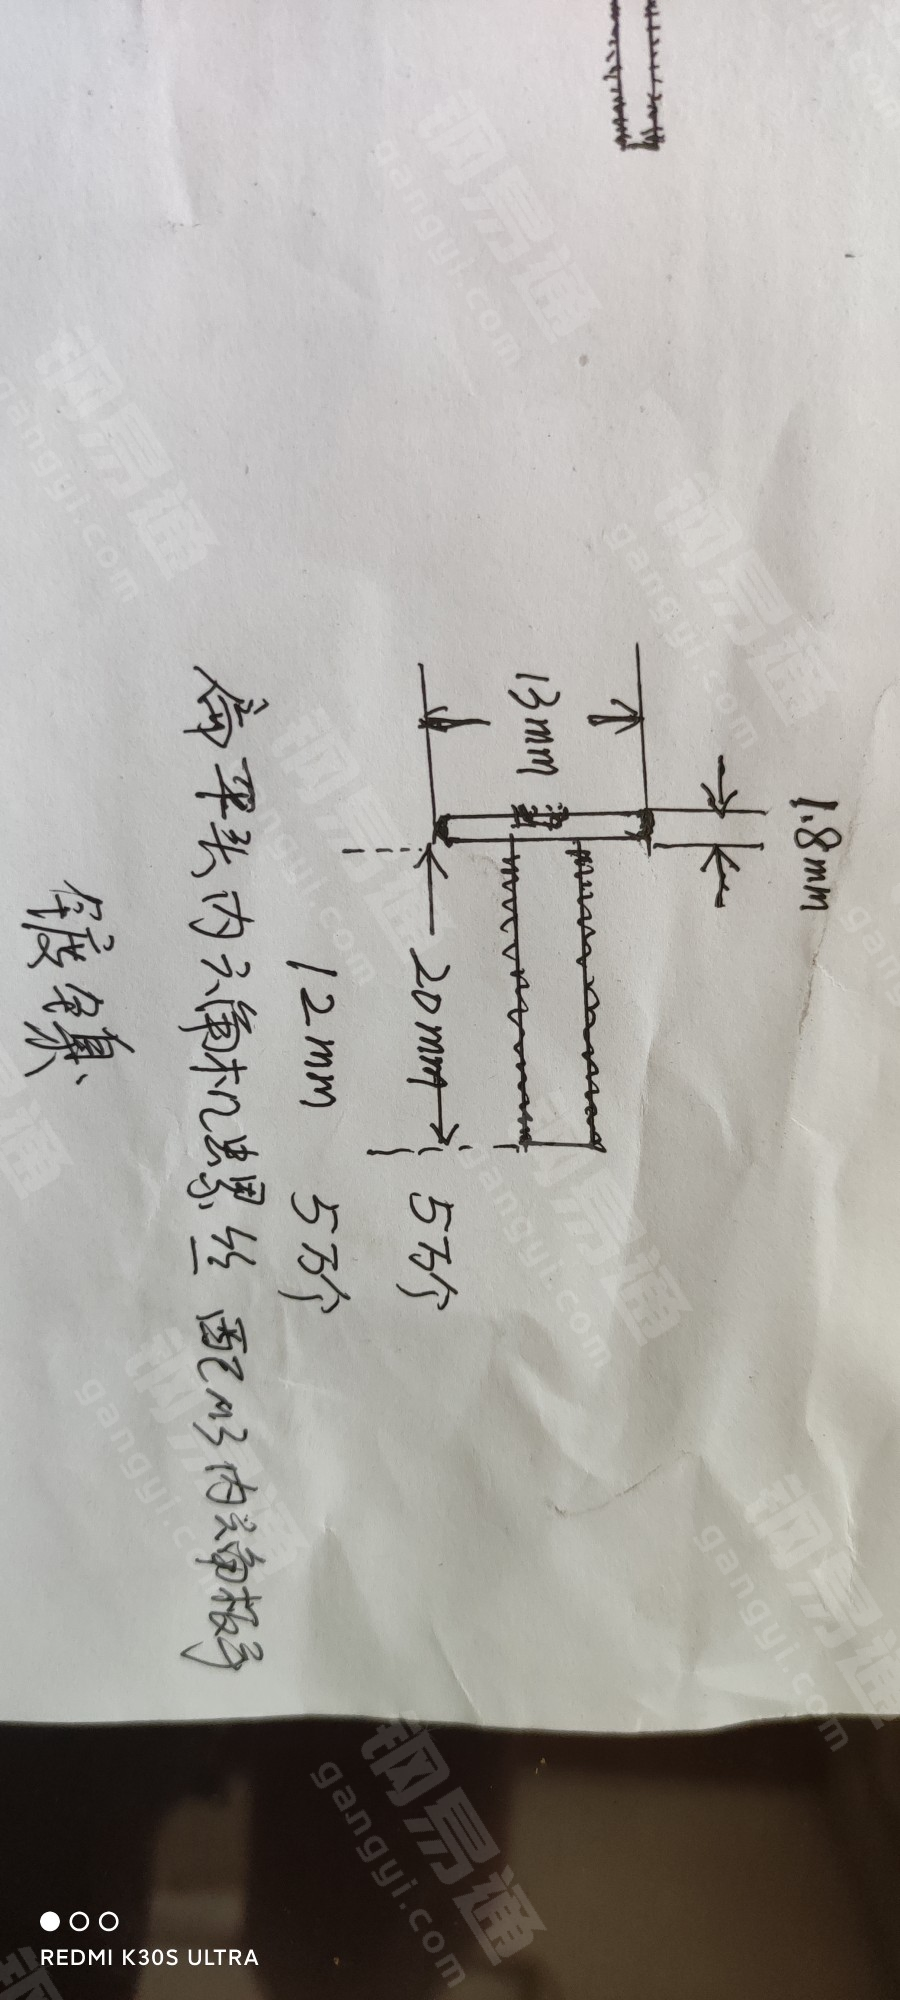 1.8mm
13mm
20mm 5万个
12mm 5万个
平头内六角机螺丝 配M3内六角板手
镀镍
REDMI K30S ULTRA
钢易通
gangyi.com